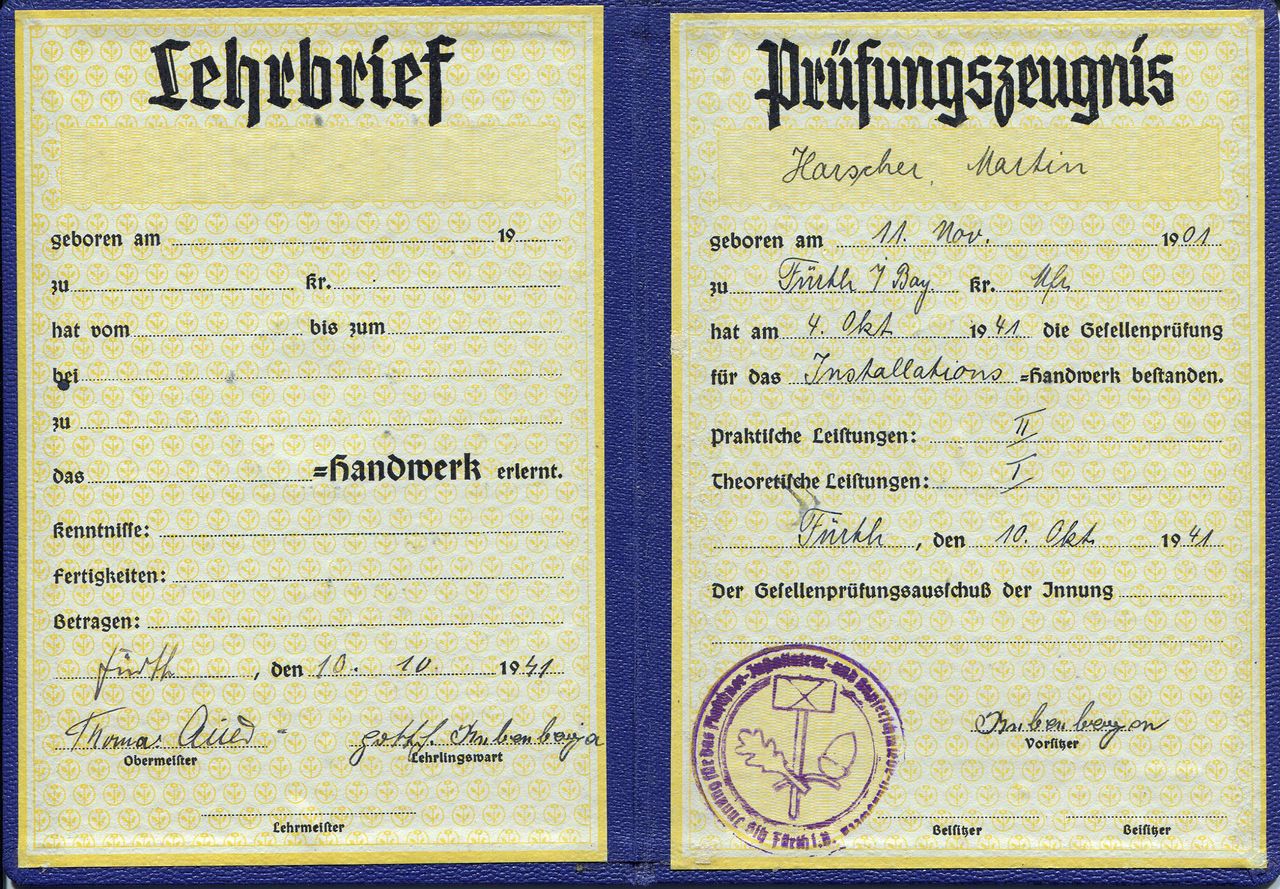 Lehrbrief
geboren am 19
zu Kr.
hat vom bis zum
bei
zu
das =Handwerk erlernt.
Kenntnisse:
Fertigkeiten:
Betragen:
Fürth, den 10. 10. 1941
Thomas
Obermeister Lehrlingswart
Lehrmeister
Prüfungszeugnis
Harscher, Martin
geboren am 11. Nov. 1901
zu Fürth i/Bay Kr. Mfr.
hat am 4. Okt 1941 die Gesellenprüfung
für das Installations =Handwerk bestanden.
Praktische Leistungen: II
Theoretische Leistungen: I
Fürth, den 10. Okt. 1941
Der Gesellenprüfungsausschuß der Innung
Vorsitzer
Beisitzer Beisitzer
Innung für das Klempner-Installateur-und Kupferschmiede-Handwerk
Sitz Fürth i.B.